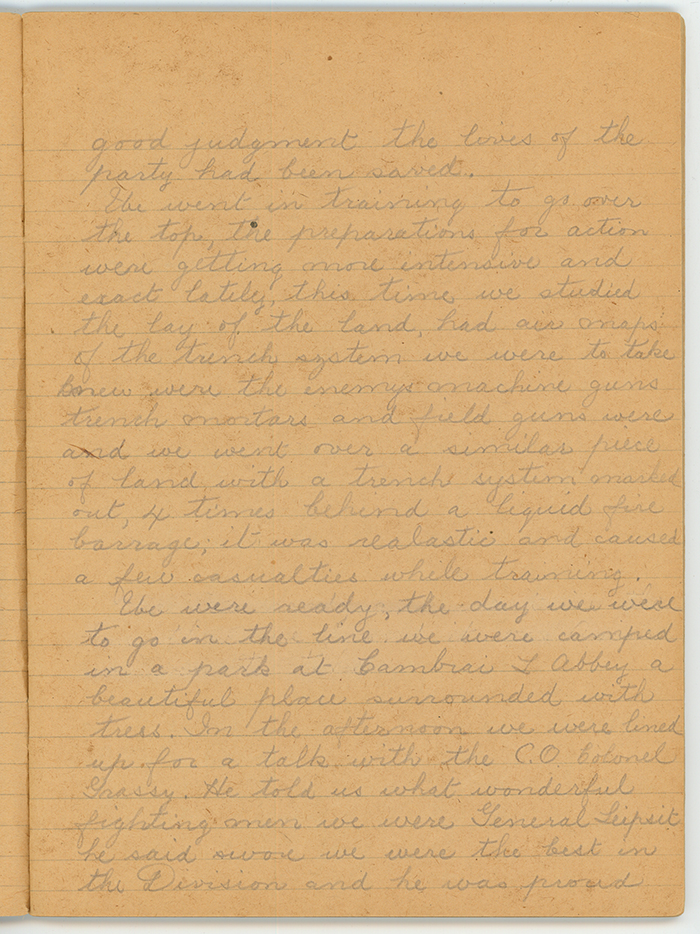 good judgment the lives of the
party had been saved.
We went in training to go over
the top, the preparations for action
were getting more intensive and
exact lately, this time we studied
the lay of the land, had air maps
of the trench system we were to take
knew were the enemys machine guns
trench mortars and field guns were
and we went over a similar piece
of land with a trench system marked
out, 4 times behind a liquid fire
barrage, it was realastic and caused
a few casualties while training.
We were ready, the day we were
to go in the line we were camped
in a park at Cambrai L Abbey a
beautiful place surrounded with
tress. In the afternoon we were lined
up for a talk with the C.O. Colonel
Grassy. He told us what wonderful
fighting men we were General Leipsit
he said swore we were the best in
the Division and he was proud